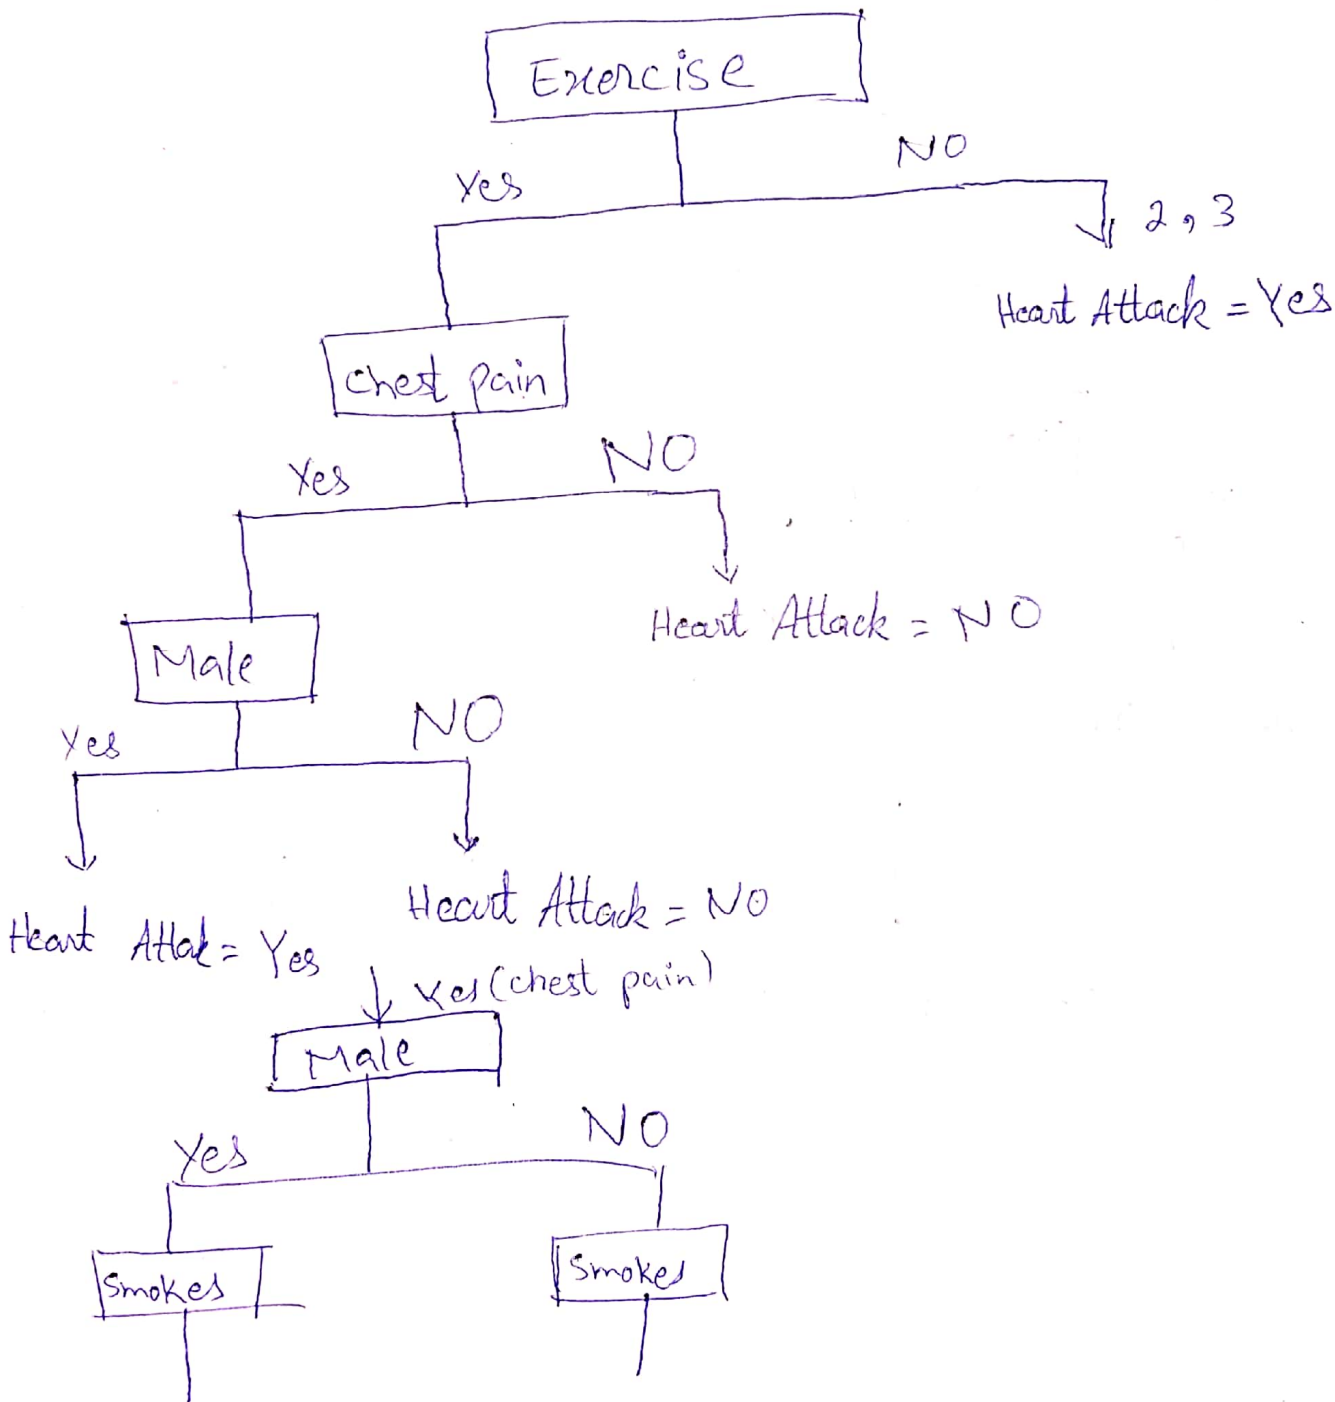 Exercise
NO
Yes
2, 3
Heart Attack = Yes
Chest pain
NO
Yes
Heart Attack = NO
Male
NO
Yes
Heart Attack = NO
Heart Attak = Yes
Yes (chest pain)
Male
NO
Yes
Smokes
Smokes